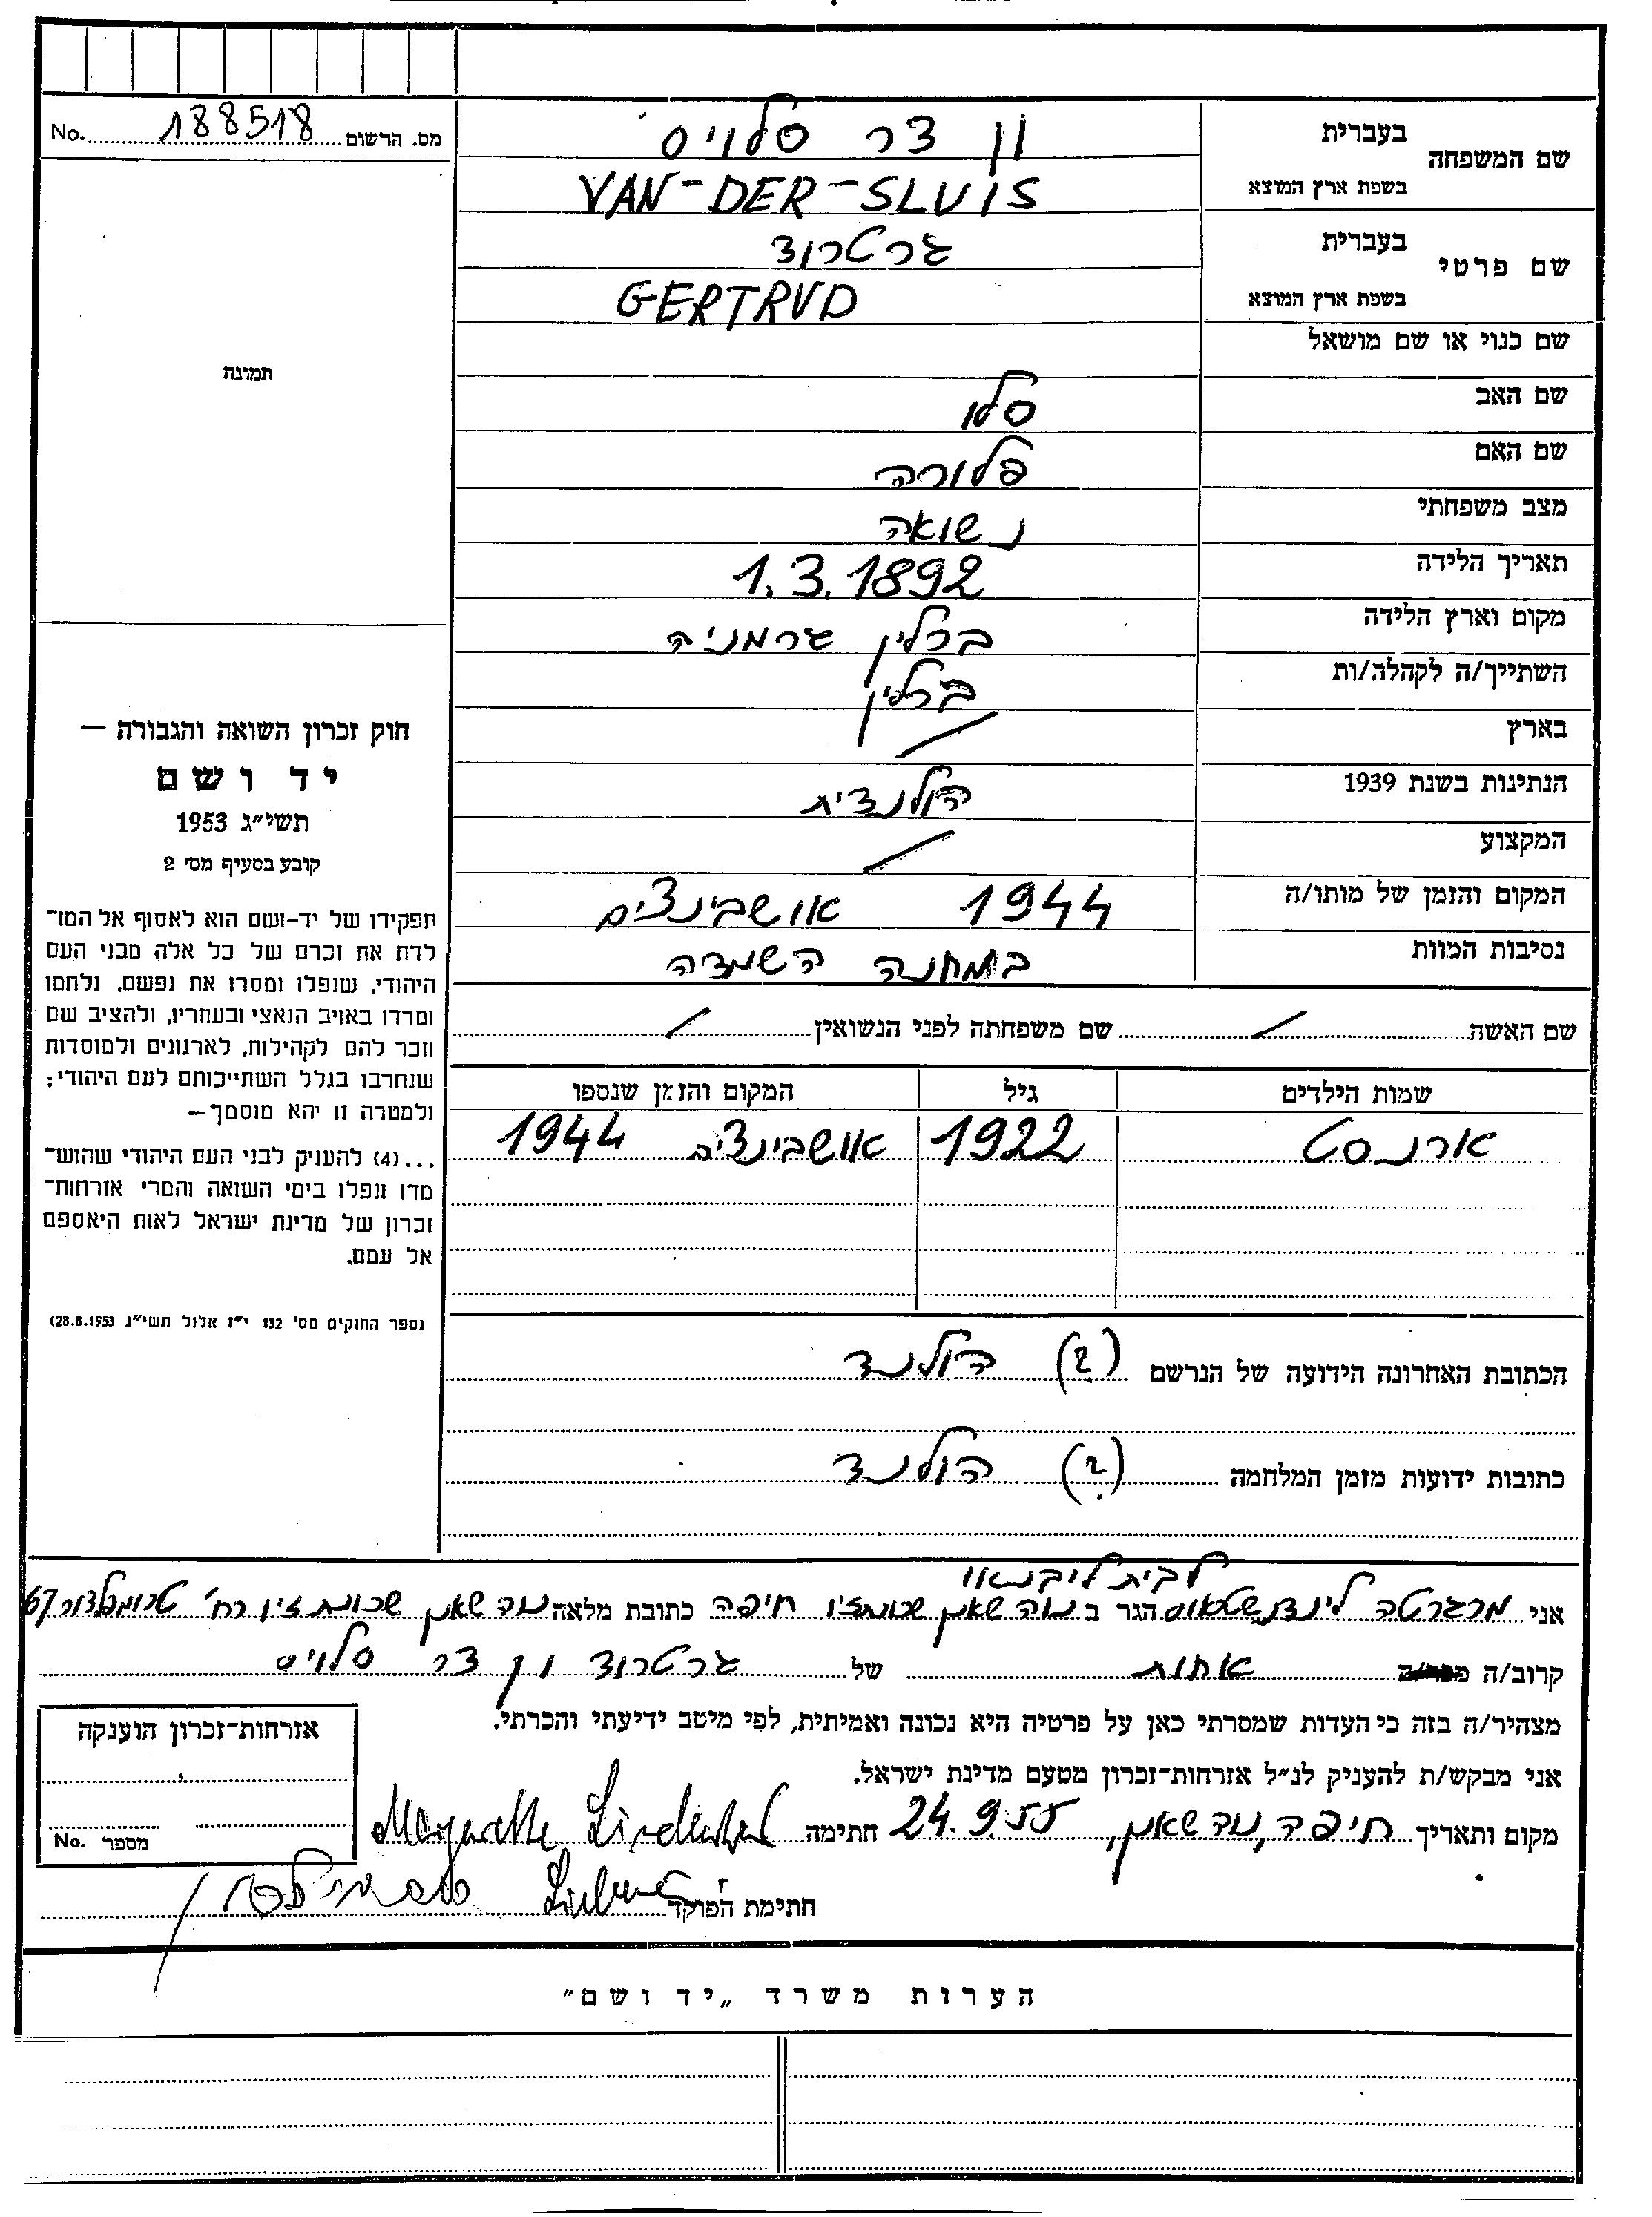 No. 188518 מס. הרשום
שם המשפחה
בעברית ון דר סלויס
בשפת ארץ המוצא VAN-DER-SLUIS
שם פרטי
בעברית גרטרוד
בשפת ארץ המוצא GERTRUD
שם כנוי או שם מושאל
שם האב סלו
שם האם פלורה
מצב משפחתי נשואה
תאריך הלידה 1.3.1892
מקום וארץ הלידה ברלין גרמניה
השתייך/ה לקהלה/ות ברלין
בארץ /
הנתינות בשנת 1939 הולנדית
המקצוע /
המקום והזמן של מותו/ה 1944 אושבינצים
נסיבות המוות במחנה השמדה
תמונה
חוק זכרון השואה והגבורה –
יד ושם
תשי״ג 1953
קובע בסעיף מס׳ 2
תפקידו של יד-ושם הוא לאסוף אל המו־
לדת את זכרם של כל אלה מבני העם
היהודי, שנפלו ומסרו את נפשם, נלחמו
ומרדו באויב הנאצי ובעוזריו, ולהציב שם
וזכר להם לקהילות, לארגונים ולמוסדות
שנחרבו בגלל השתייכותם לעם היהודי;
ולמטרה זו יהא מוסמך–
...(4) להעניק לבני העם היהודי שהוש־
מדו ונפלו בימי השואה והמרי אזרחות־
זכרון של מדינת ישראל לאות היאספם
אל עמם.
(ספר החוקים מס׳ 132 י״ז אלול תשי״ג 28.8.1953)
שם האשה / שם משפחתה לפני הנשואין /
שמות הילדים גיל המקום והזמן שנספו
ארנסט 1922 אושבינצים 1944
הכתובת האחרונה הידועה של הנרשם (?) הולנד
כתובות ידועות מזמן המלחמה (?) הולנד
לבית ליבנאו
אני מרגרטה לינדנשטאוס הגר ב נוה שאנן שכונת זיו חיפה כתובת מלאה נוה שאנן שכונת זיו רח׳ טרומפלדור 67
קרוב/ה אחות של גרטרוד ון דר סלויס
מצהיר/ה בזה כי העדות שמסרתי כאן על פרטיה היא נכונה ואמיתית, לפי מיטב ידיעתי והכרתי.
אני מבקש/ת להעניק לנ״ל אזרחות־זכרון מטעם מדינת ישראל.
מקום ותאריך חיפה, נוה שאנן, 24.9.55 חתימה
חתימת הפוקד
אזרחות־זכרון הוענקה
מספר No.
הערות משרד „יד ושם״